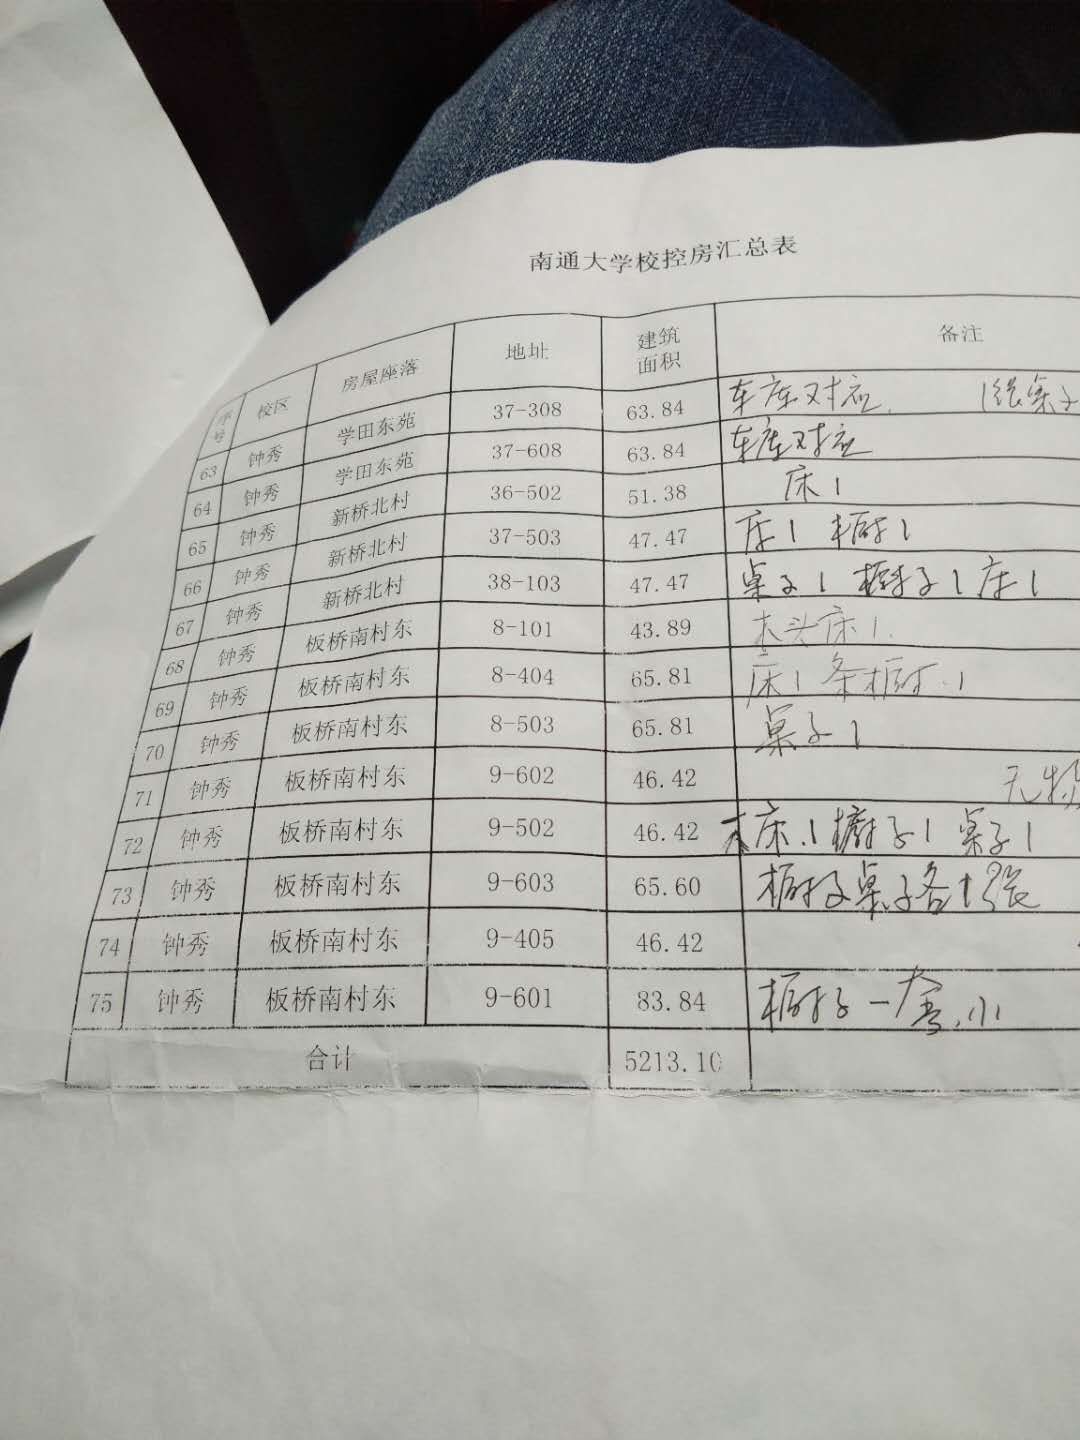 南通大学校控房汇总表
序号 校区 房屋座落 地址 建筑面积 备注
63 钟秀 学田东苑 37-308 63.84 车库对应
64 钟秀 学田东苑 37-608 63.84 车库对应
65 钟秀 新桥北村 36-502 51.38 床1
66 钟秀 新桥北村 37-503 47.47 床1 橱1
67 钟秀 新桥北村 38-103 47.47 桌子1 橱子1 床1
68 钟秀 板桥南村东 8-101 43.89 木头床1.
69 钟秀 板桥南村东 8-404 65.81 床1 橱.1
70 钟秀 板桥南村东 8-503 65.81 桌子1
71 钟秀 板桥南村东 9-602 46.42 无物
72 钟秀 板桥南村东 9-502 46.42 木床.1 橱子1 桌子1
73 钟秀 板桥南村东 9-603 65.60 橱及桌子各1张
74 钟秀 板桥南村东 9-405 46.42
75 钟秀 板桥南村东 9-601 83.84 橱子一套.小
合计 5213.10